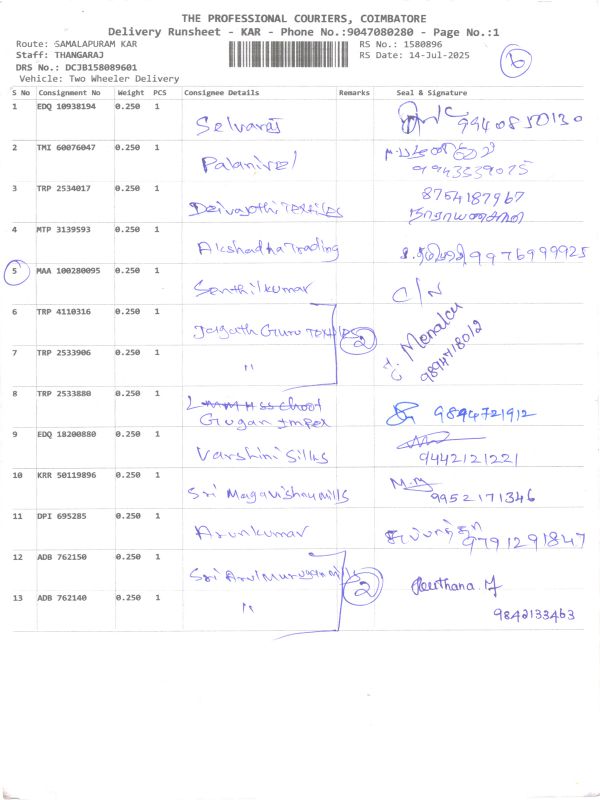 THE PROFESSIONAL COURIERS, COIMBATORE
Delivery Runsheet - KAR - Phone No.:9047080280 - Page No.:1
Route: SAMALAPURAM KAR RS No.: 1580896
Staff: THANGARAJ RS Date: 14-Jul-2025
DRS No.: DCJB158089601
Vehicle: Two Wheeler Delivery
6
S No Consignment No Weight PCS Consignee Details Remarks Seal & Signature
1 EDQ 10938194 0.250 1 Selvaraj 9940850130
2 TMI 60076047 0.250 1 Palanivel 9943539075
3 TRP 2534017 0.250 1 Deivajothi Textiles 8754187967
நாராயணசாமி
4 MTP 3139593 0.250 1 Akshadha Trading 9976999925
5 MAA 100280095 0.250 1 Senthilkumar C/N
6 TRP 4110316 0.250 1 Jagath Guru Textiles 2 Menaka
9894718012
7 TRP 2533906 0.250 1 "
8 TRP 2533880 0.250 1 Gugan Impex 9894721912
9 EDQ 18200880 0.250 1 Varshini Silks 9442121221
10 KRR 50119896 0.250 1 Sri Magavishnu Mills M.M 9952171346
11 DPI 695285 0.250 1 Arunkumar 9791291847
12 ADB 762150 0.250 1 Sri Arulmurugan Mills 2
13 ADB 762140 0.250 1 " 9842133463